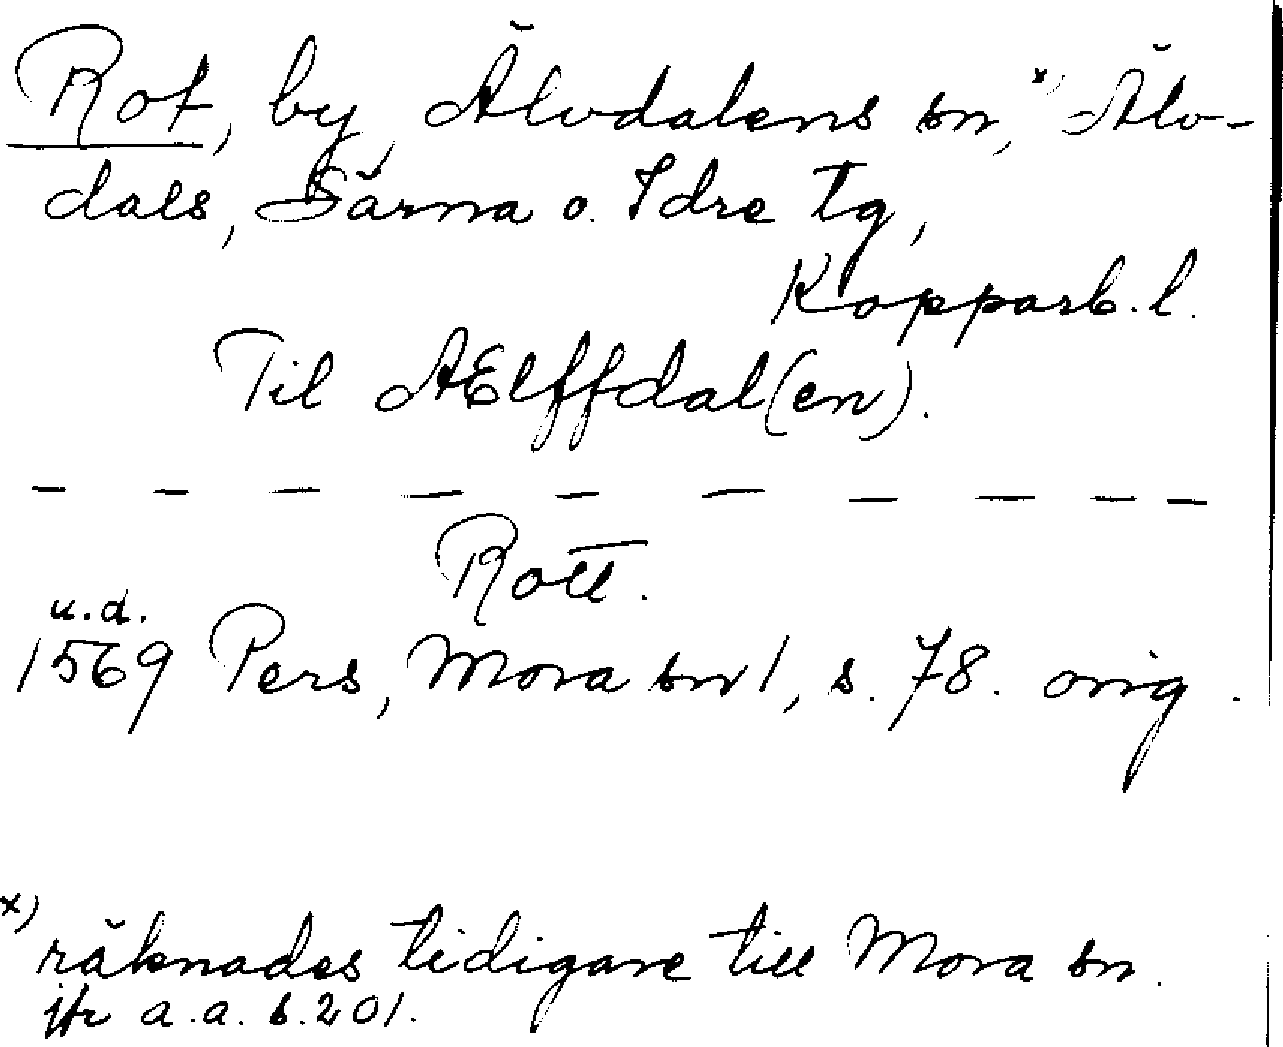 Rot, by, Älvdalens sn, x) Älv-
dals, Särna o. Idre tg,
Kopparb. l.
Til AElffdal(en).
- - - - - - - - - -
Rott.
u.d.
1569 Pers, Mora sn 1, s. 78. orig.
x) räknades tidigare till Mora sn.
jfr a.a. s. 201.